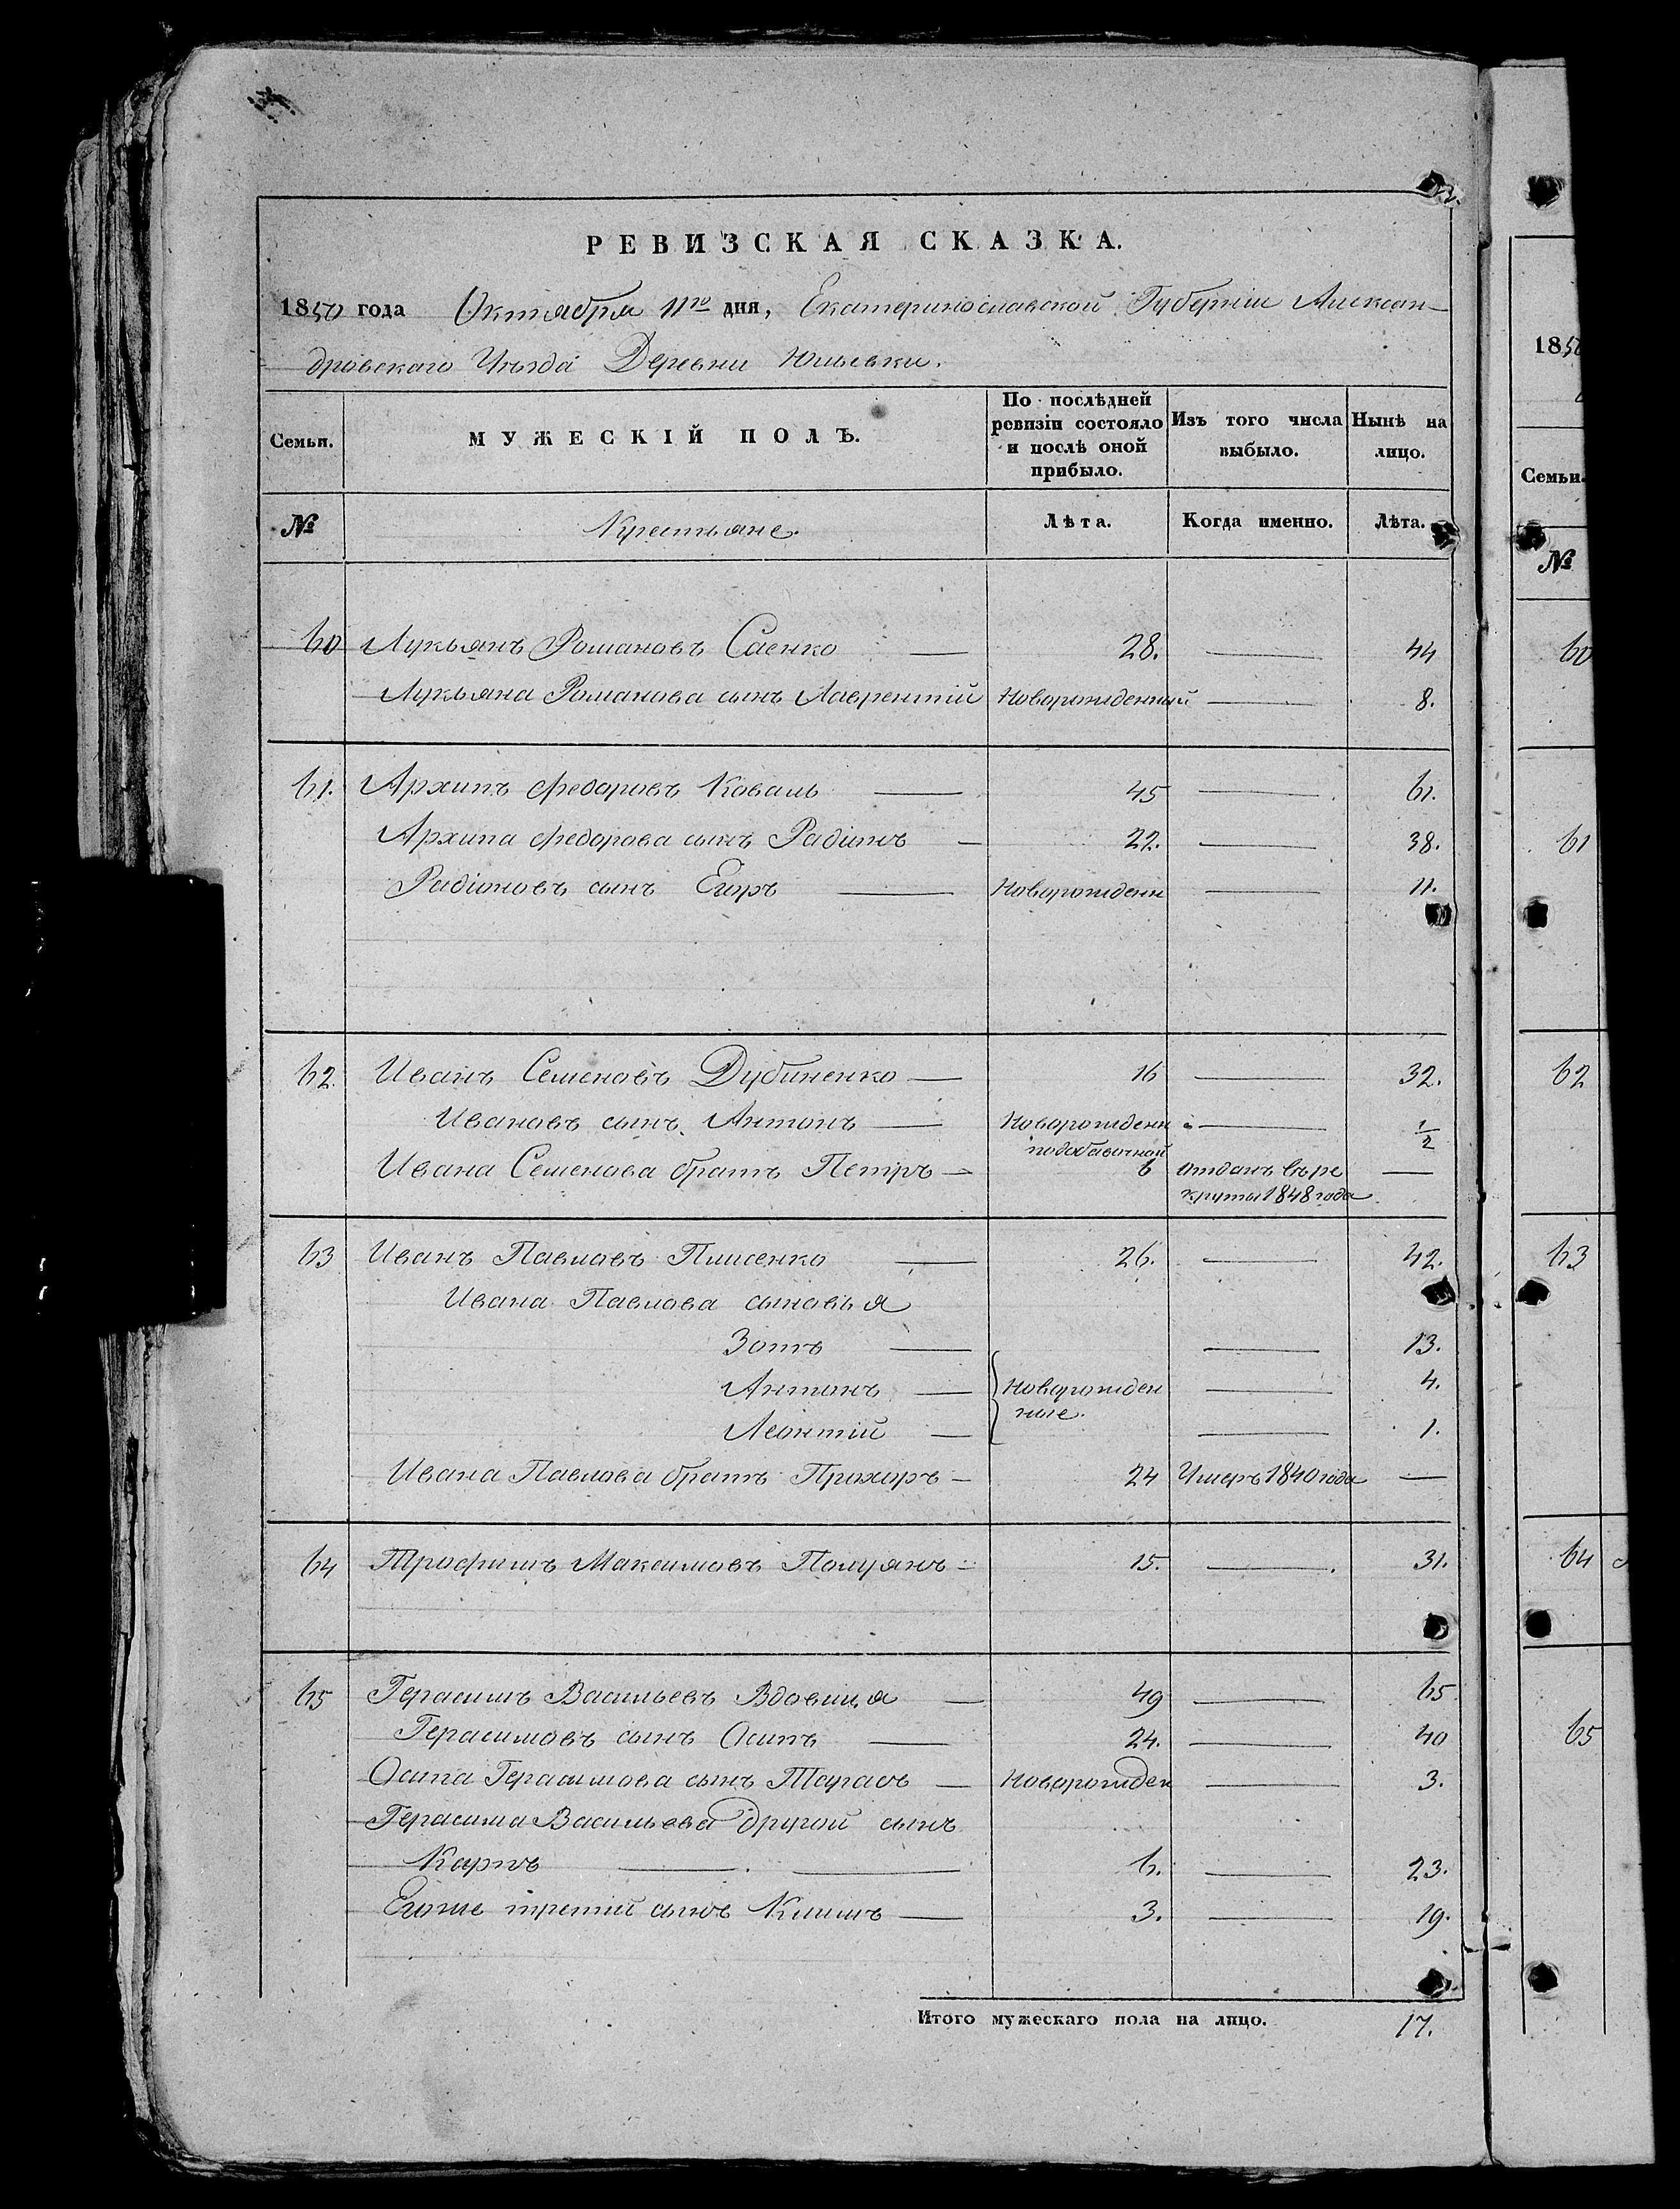 РЕВИЗСКАЯ СКАЗКА.
1850 года Октября 11го дня, Екатеринославской Губерніи Алексан-
дровскаго Уѣзда Деревни Юльевки.
Семьи. МУЖЕСКІЙ ПОЛЪ. По послѣдней ревизіи состояло и послѣ оной прибыло. Изъ того числа выбыло. Нынѣ на лицо.
№ Крестьяне. Лѣта. Когда именно. Лѣта.
60 Лукьянъ Романовъ Саенко — 28. — 44
Лукьяна Романова сынъ Лаврентій Новорожденный — 8.
61. Архипъ Федоровъ Коваль — 45 — 61.
Архипа Федорова сынъ Радіонъ — 22. — 38.
Радіоновъ сынъ Егоръ — Новорожденн — 11.
62. Иванъ Семеновъ Дубиненко — 16 — 32.
Ивановъ сынъ Антонъ — Новорожденн — 1/2
подобавочной
Ивана Семенова братъ Петръ — 6 отданъ въ ре
круты 1848 года —
63 Иванъ Павловъ Плисенко — 26. — 42.
Ивана Павлова сыновья
Зотъ — — 13.
Антонъ — Новорожден — 4.
ные.
Леонтій — — 1.
Ивана Павлова братъ Прохоръ — 24 Умеръ 1840 года —
64 Трофимъ Максимовъ Полуянъ — 15. — 31.
65 Герасимъ Васильевъ Вдовица — 49 — 65
Герасимовъ сынъ Осипъ — 24. — 40
Осипа Герасимова сынъ Тарасъ — Новорожден — 3.
Герасима Васильева другой сынъ
Карпъ — — 6. — 23.
Егоже третій сынъ Климъ — 3. — 19.
Итого мужескаго пола на лицо. 17.
1850
Семьи.
№
60
61
62
63
64
65